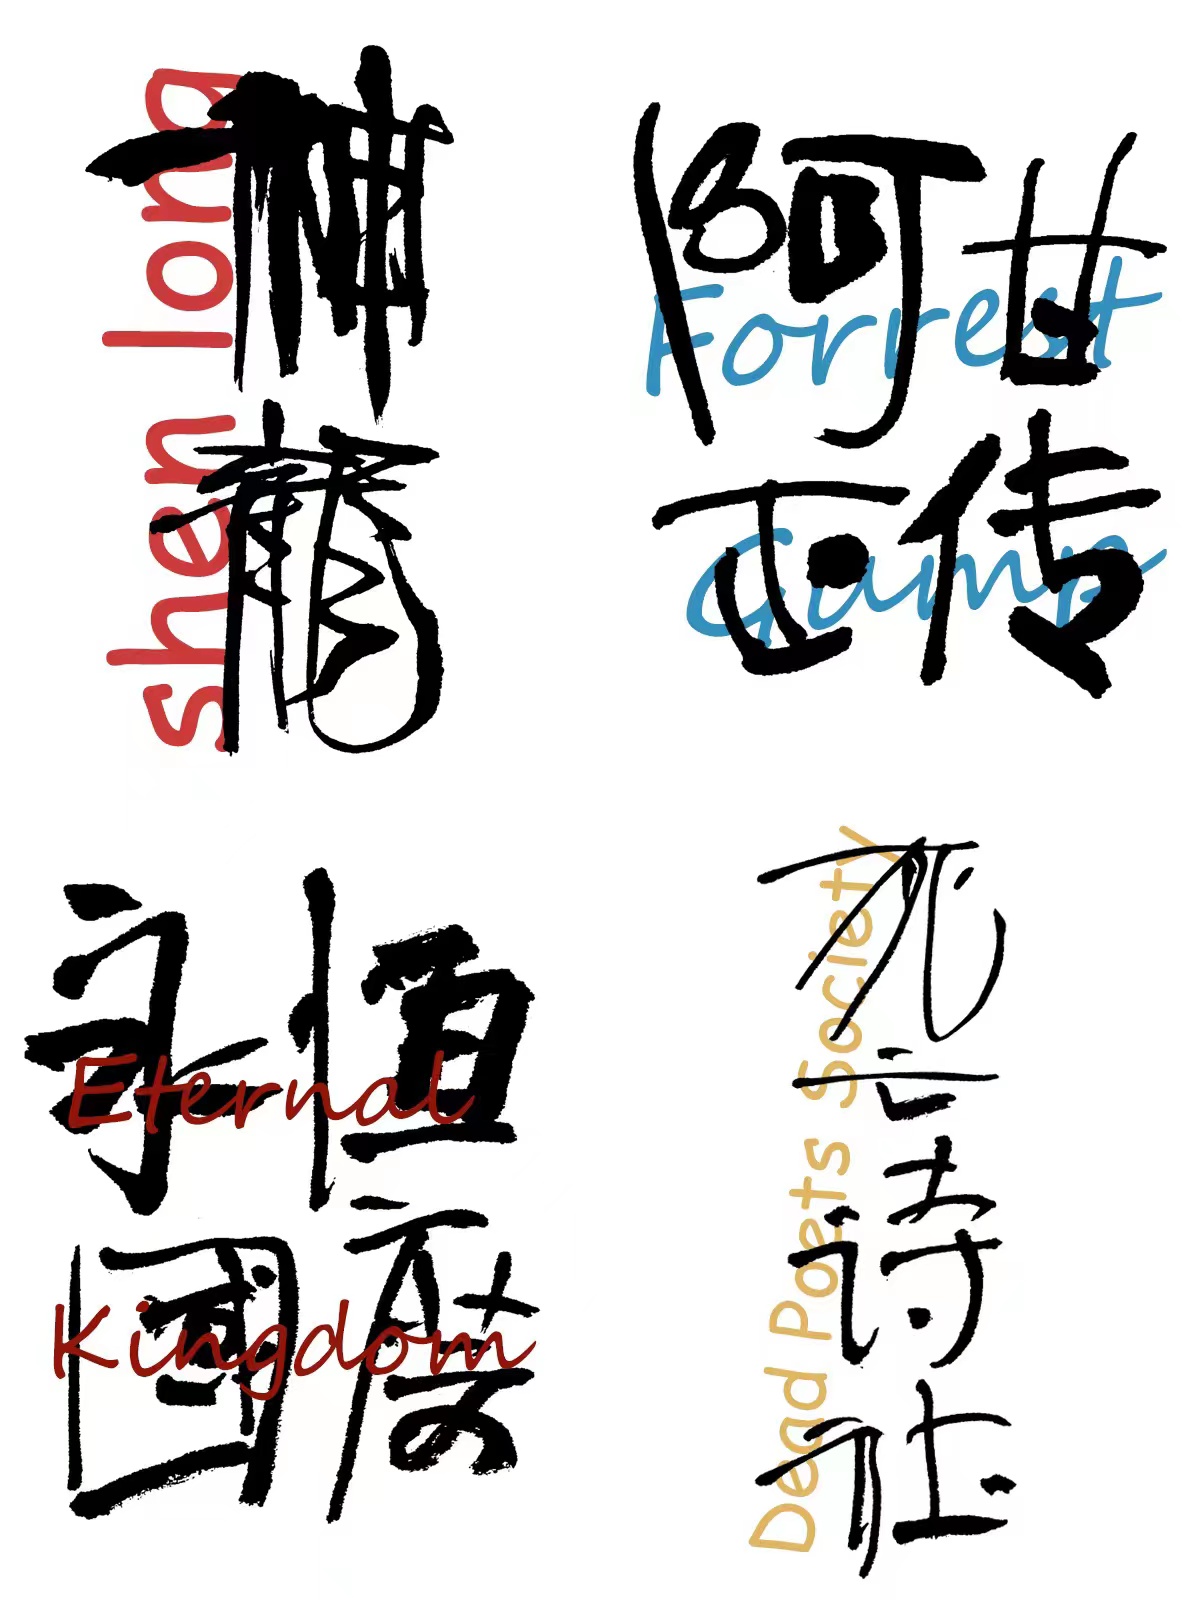 神龍
shen long
阿甘
Forrest
正传
Gump
永恒
Eternal
國度
Kingdom
死亡诗社
Dead Poets Society